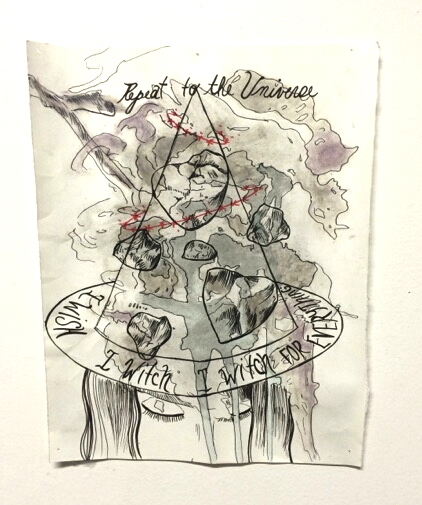 Repeat to the Universe
I WISH
I Witch
I WITCH FOR
EVERYTHING